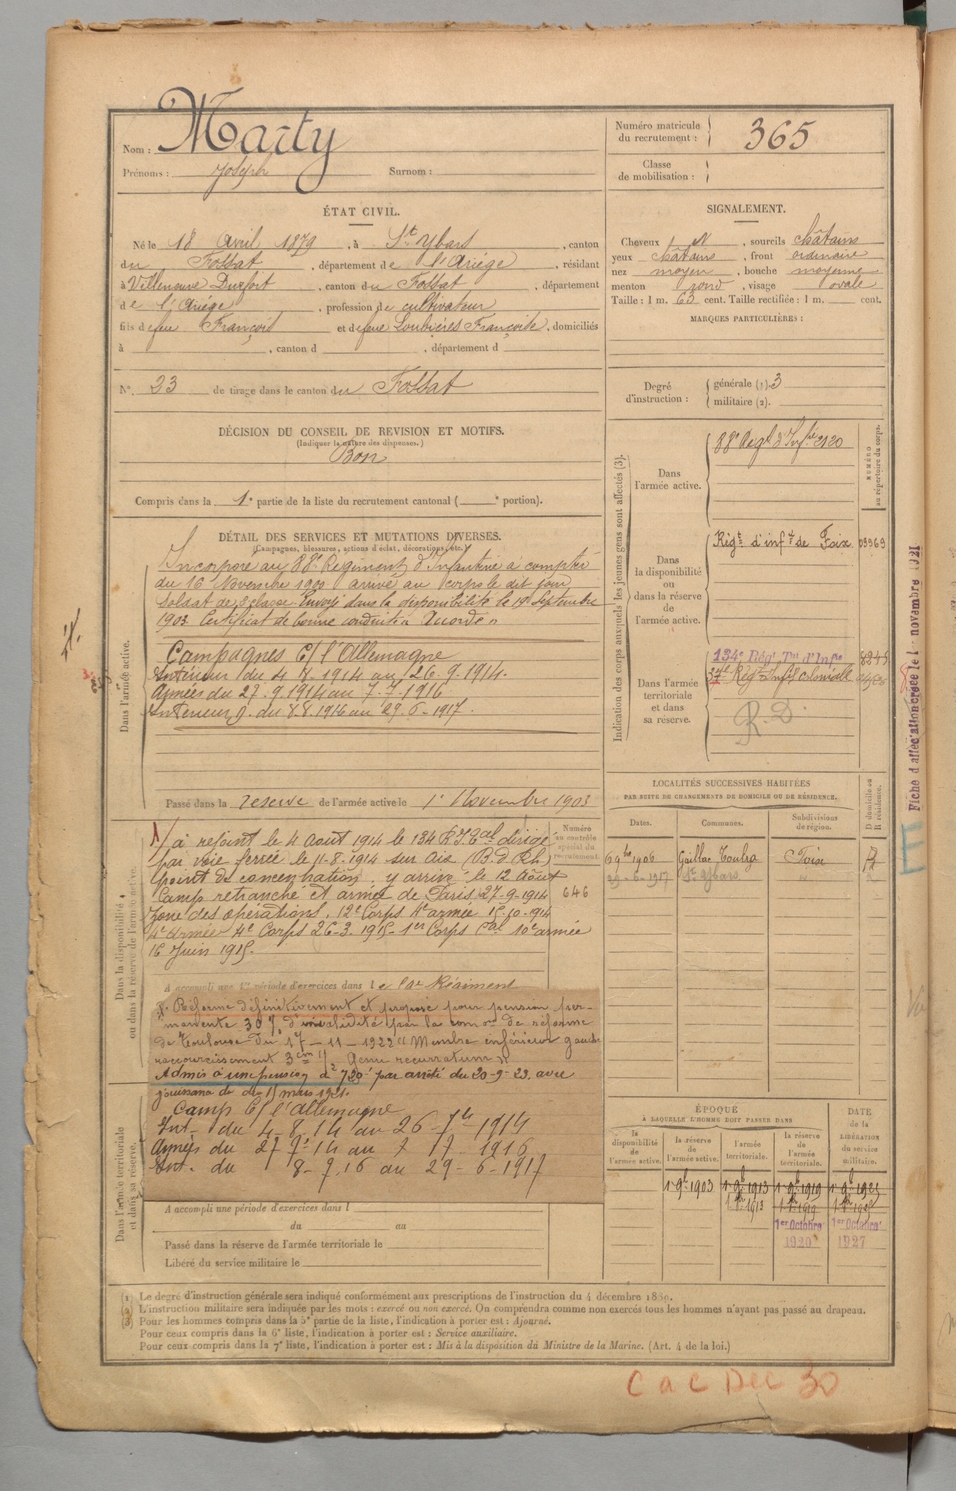 Nom : Marty
Prénoms : Joseph Surnom :
Numéro matricule du recrutement : 365
Classe de mobilisation :
ÉTAT CIVIL.
Né le 18 Avril 1879, à St Ybars, canton
du Fossat, département de l'Ariège, résidant
à Villeneuve Durfort, canton du Fossat, département
de l'Ariège, profession de cultivateur
fils de feu François et de feue Loubières Françoise, domiciliés
à , canton d , département d
N° 23 de tirage dans le canton du Fossat
SIGNALEMENT.
Cheveux N, sourcils châtains
yeux châtains, front ordinaire
nez moyen, bouche moyenne
menton rond, visage ovale
Taille : 1 m. 63 cent. Taille rectifiée : 1 m. cent.
MARQUES PARTICULIÈRES :
Degré d'instruction : générale (1). 3
militaire (2).
DÉCISION DU CONSEIL DE REVISION ET MOTIFS.
(Indiquer la nature des dispenses.)
Bon
Compris dans la 1e partie de la liste du recrutement cantonal ( e portion).
DÉTAIL DES SERVICES ET MUTATIONS DIVERSES.
(Campagnes, blessures, actions d'éclat, décorations, etc.)
Dans l'armée active.
Incorporé au 88e Régiment d'Infanterie à compter
du 16 Novembre 1900 arrivé au corps le dit jour
Soldat de 2e classe. Envoyé dans la disponibilité le 19 Septembre
1903. Certificat de bonne conduite "Accordé"
Campagnes C/ l'Allemagne
Intérieur du 4.8.1914 au 26.9.1914.
Armées du 27.9.1914 au 7.7.1916
Intérieur du 8.8.1916 au 29-6-1917.
Passé dans la réserve de l'armée active le 1er Novembre 1903
Dans la disponibilité ou dans la réserve de l'armée active.
Numéro au contrôle spécial du recrutement.
646
A rejoint le 4 Août 1914 le 134 R.I.Tal dirigé
par voie ferrée le 11-8-1914 sur Aix (B.d.Rh.)
point de concentration, y arrivé le 12 Août
Camp retranché et armée de Paris, 27-9-1914
Zone des opérations. 12e Corps 4e armée 15-10-1914
4e armée 4e Corps 26-3-1915- 1er Corps Cal 10e armée
16 Juin 1915.
A accompli une 1re période d'exercices dans le Régiment
Réformé définitivement et proposé pour pension per-
manente 30% d'invalidité par la comon de réforme
de Toulouse du 17-11-1922 "Membre inférieur gauche
raccourcissement 3cm 1/2 Genu recurvatum"
Admis à une pension de 720f par arrêté du 20-9-23, avec
jouissance du 15 mars 1921.
Camp C/ l'Allemagne
Int- du 4-8-14 au 26-7bre 1914
Armées du 27 7bre 14 au 7 17- 1916
Int. du 8-7-16 au 29-6-1917
Dans l'armée territoriale et dans sa réserve.
A accompli une période d'exercices dans l
du au
Passé dans la réserve de l'armée territoriale le
Libéré du service militaire le
Indication des corps auxquels les jeunes gens sont affectés (3).
NUMÉRO au répertoire du corps.
Dans l'armée active.
88e Régt d'Infie 2120
Dans la disponibilité ou dans la réserve de l'armée active.
Régt d'infie de Foix 03969
Dans l'armée territoriale et dans sa réserve.
134e Régt Tal d'Infie
37e Régt Infie Coloniale
R.D.
LOCALITÉS SUCCESSIVES HABITÉES
PAR SUITE DE CHANGEMENTS DE DOMICILE OU DE RÉSIDENCE.
Dates. Communes. Subdivisions de région. D domicile ou R résidence.
6 9bre 1906 Gaillac Toulza Foix R
29-6-1917 St Ybars "
ÉPOQUE
À LAQUELLE L'HOMME DOIT PASSER DANS
la disponibilité de l'armée active. la réserve de l'armée active. l'armée territoriale. la réserve de l'armée territoriale.
DATE de la LIBÉRATION du service militaire.
1er 9bre 1903 1er 9bre 1913 1er 9bre 1919 1er 9bre 1925
1er Octobre 1920 1er Octobre 1927
Fiche d'affectation créée le 1er novembre 1921
E
(1) Le degré d'instruction générale sera indiqué conformément aux prescriptions de l'instruction du 4 décembre 1889.
(2) L'instruction militaire sera indiquée par les mots : exercé ou non exercé. On comprendra comme non exercés tous les hommes n'ayant pas passé au drapeau.
(3) Pour les hommes compris dans la 5e partie de la liste, l'indication à porter est : Ajourné.
Pour ceux compris dans la 6e liste, l'indication à porter est : Service auxiliaire.
Pour ceux compris dans la 7e liste, l'indication à porter est : Mis à la disposition du Ministre de la Marine. (Art. 4 de la loi.)
C a C Dec 30